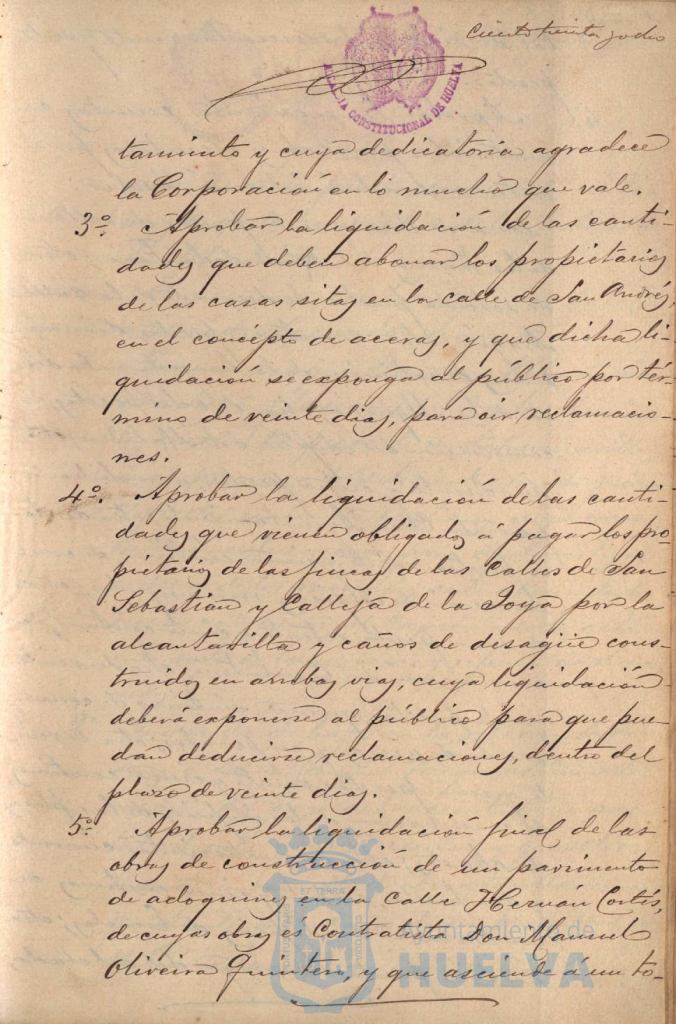 Ciento treinta y ocho
ALCALDIA CONSTITUCIONAL DE HUELVA
tamiento y cuya dedicatoria agradece
la Corporación en lo mucho que vale.
3º. Aprobar la liquidación de las canti-
dades que deben abonar los propietarios
de las casas sitas en la calle de San Andrés,
en el concepto de aceras, y que dicha li-
quidación se exponga al público por tér-
mino de veinte dias, para oir reclamacio-
nes.
4º. Aprobar la liquidación de las canti-
dades que vienen obligados á pagar los pro-
pietarios de las fincas de las calles de San
Sebastian y Calleja de la Joya por la
alcantarilla y caños de desagüe cons-
truidos en ambas vias, cuya liquidación
deberá exponerse al público para que pue-
dan deducirse reclamaciones, dentro del
plazo de veinte dias.
5º. Aprobar la liquidación final de las
obras de construcción de un pavimento
de adoquines en la calle Hernán Cortés,
de cuyas obras és Contratista Don Manuel
Oliveira Quintero, y que asciende á un to-
Ayuntamiento de
HUELVA